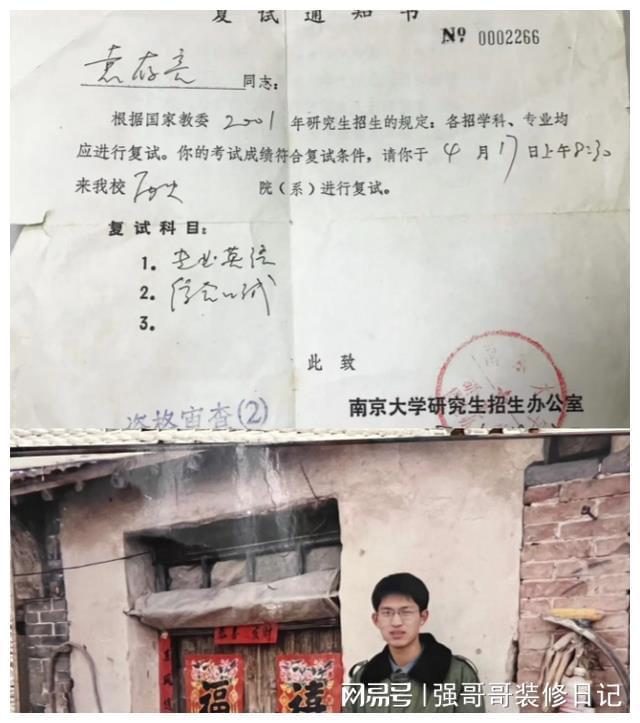 复试通知书
№ 0002266
袁存亮 同志：
根据国家教委 2001 年研究生招生的规定：各招学科、专业均
应进行复试。你的考试成绩符合复试条件，请你于 4 月 17 日上午8:30
来我校 历史 院（系）进行复试。
复试科目：
1. 专业英语
2. 综合口试
3.
此致
南京大学研究生招生办公室
资格审查(2)
恭喜发财
福
禧
网易号 | 强哥哥装修日记